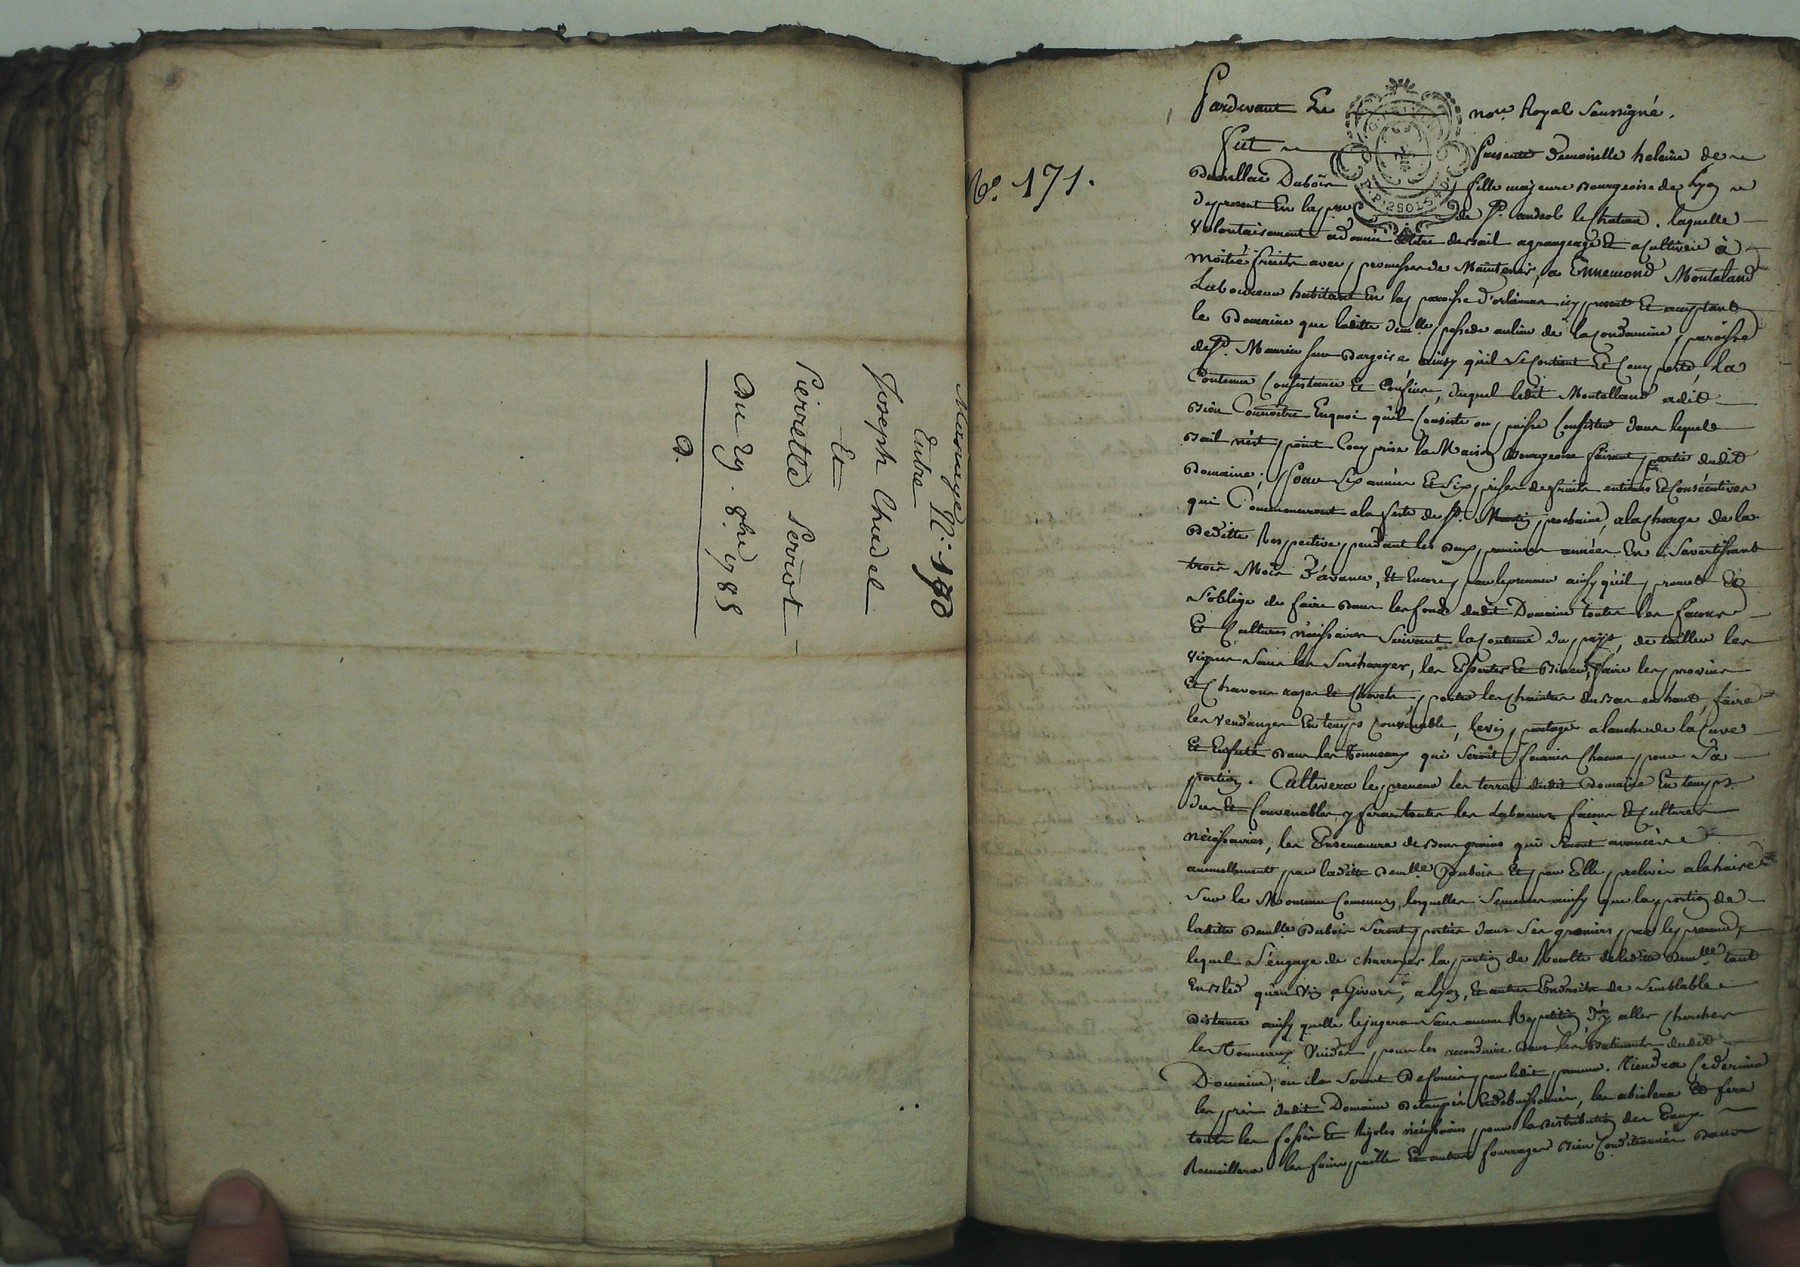 Mariage N.º 170
Entre
Joseph Chadel
Et
Pierrette Serriot
Du 29. 9bre 1785
D.
Nº. 171.
Pardevant Le nore. Royal Soussigné.
Fut presente Demoiselle heleine de
Dubois fille majeure Bourgeoise de Lyon
de present En la psse de St. andeol le Chateau. laquelle
volontairement a donnée à titre de bail a grangeage Et a Cultiver à
moitié fruits avec promesse de Maintenir, a Ennemond Montaland
Laboureur habitant En la paroisse d'orliénas icy present Et acceptant
le Domaine que laditte Demlle. possede au lieu de la Condamine, paroisse
de St. Maurice sur Dargoire ainsy qu'il Se Contient Et Comporte, la
Contenue Consistance Et Confins, duquel ledit Montelland a dit
Bien Connoitre Enquoi qu'il Consiste ou puisse Consister dans lequel
Bail n'est point Comprise la Maison Bourgeoise faisant partie dudit
Domaine; Pour Six années Et Six prises de fruits entieres Et Consécutives
qui Commenceront a la feste de St. Martin prochaine, a la charge de la
Deditte Respective pendant les deux premieres années En S'avertissant
trois Mois d'avance, Et Encore par le preneur ainsy qu'il promet Et
S'oblige de faire dans les fonds dudit Domaine toutes les façons
Et Cultures nécessaires Suivant la Coutume du pays, de tailler les
Vignes Sans les Surcharger, les Et Biner, faire les provins
Et Chavons raser Et porter les Chaintres du Bas en haut, faire
les Vendanges En temps Convenable, le vin partagé a l'anche de la Cuve
Et Ensuite dans les Tonneaux qui Seront fournis Chacun pour Sa
portion. Cultivera le preneur les terres dudit Domaine En temps
dus Et Convenables, y fera toutes les Labours façons Et Cultures
nécessaires, les Ensemencera de Bons grains qui Seront avancés
annuellement par laditte Demlle. Dubois Et par Elle prelevés
Sur le Monceau Commun, lesquelles Semences ainsy que la portion de
laditte Demlle. Dubois Seront portées dans Ses greniers par le preneur,
lequel S'engage de charroyer la portion de Recolte de laditte Demlle. tant
En Bled qu'en Vin, a Givors, a Lyon, Et autres Endroits de Semblable
distance ainsy quelle le jugera Sans aucune Repetition d'y aller Chercher
les Tonneaux Vuides, pour les reconduire dans les Batiments dudit
Domaine, ou ils Seront Descendus par ledit preneur. Tiendra Ce dernier
les prés dudit Domaine Detaupés Et debuissonnés, les abielera Et fera
toutes les fosses Et Rigoles nécessaires pour la distribution des Eaux
Recueillera les foins, pailles Et autres fourrages Bien Conditionnés dans